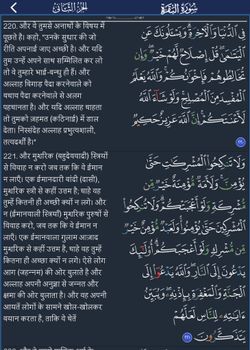 الجزء الثاني
سورة البقرة
220. और ये तुमसे अनाथों के विषय में
पूछते है। कहो, "उनके सुधार की जो
रीति अपनाई जाए अच्छी है। और यदि
तुम उन्हें अपने साथ सम्मिलित कर लो
तो वे तुम्हारे भाई-बन्धु ही हैं। और
अल्लाह बिगाड़ पैदा करनेवाले को
बचाव पैदा करनेवाले से अलग
पहचानता है। और यदि अल्लाह चाहता
तो तुमको ज़हमत (कठिनाई) में डाल
देता। निस्संदेह अल्लाह प्रभुत्वशाली,
तत्वदर्शी है।"
فِي الدُّنْيَا وَالْآخِرَةِ وَيَسْأَلُونَكَ عَنِ
الْيَتَامَىٰ قُلْ إِصْلَاحٌ لَّهُمْ خَيْرٌ وَإِن
تُخَالِطُوهُمْ فَإِخْوَانُكُمْ وَاللَّهُ يَعْلَمُ
الْمُفْسِدَ مِنَ الْمُصْلِحِ وَلَوْ شَاءَ اللَّهُ
لَأَعْنَتَكُمْ إِنَّ اللَّهَ عَزِيزٌ حَكِيمٌ
٢٢٠
221. और मुशरिक (बहुदेववादी) स्त्रियों
से विवाह न करो जब तक कि वे ईमान
न लाएँ। एक ईमानदारी बांदी (दासी),
मुशरिक स्त्री से कहीं उत्तम है; चाहे वह
तुम्हें कितनी ही अच्छी क्यों न लगे। और
न (ईमानवाली स्त्रियाँ) मुशरिक पुरुषों से
विवाह करो, जब तक कि वे ईमान न
लाएँ। एक ईमानवाला गुलाम आज़ाद
मुशरिक से कहीं उत्तम है, चाहे वह तुम्हें
कितना ही अच्छा क्यों न लगे। ऐसे लोग
आग (जहन्नम) की ओर बुलाते है और
अल्लाह अपनी अनुज्ञा से जन्नत और
क्षमा की ओर बुलाता है। और वह अपनी
आयतें लोगों के सामने खोल-खोलकर
बयान करता है, ताकि वे चेतें
وَلَا تَنكِحُوا الْمُشْرِكَاتِ حَتَّىٰ
يُؤْمِنَّ وَلَأَمَةٌ مُّؤْمِنَةٌ خَيْرٌ
مِّن مُّشْرِكَةٍ وَلَوْ أَعْجَبَتْكُمْ وَلَا تُنكِحُوا
الْمُشْرِكِينَ حَتَّىٰ يُؤْمِنُوا وَلَعَبْدٌ مُّؤْمِنٌ خَيْرٌ
مِّن مُّشْرِكٍ وَلَوْ أَعْجَبَكُمْ أُولَٰئِكَ
يَدْعُونَ إِلَى النَّارِ وَاللَّهُ يَدْعُو إِلَى
الْجَنَّةِ وَالْمَغْفِرَةِ بِإِذْنِهِ وَيُبَيِّنُ
آيَاتِهِ لِلنَّاسِ لَعَلَّهُمْ
يَتَذَكَّرُونَ ٢٢١